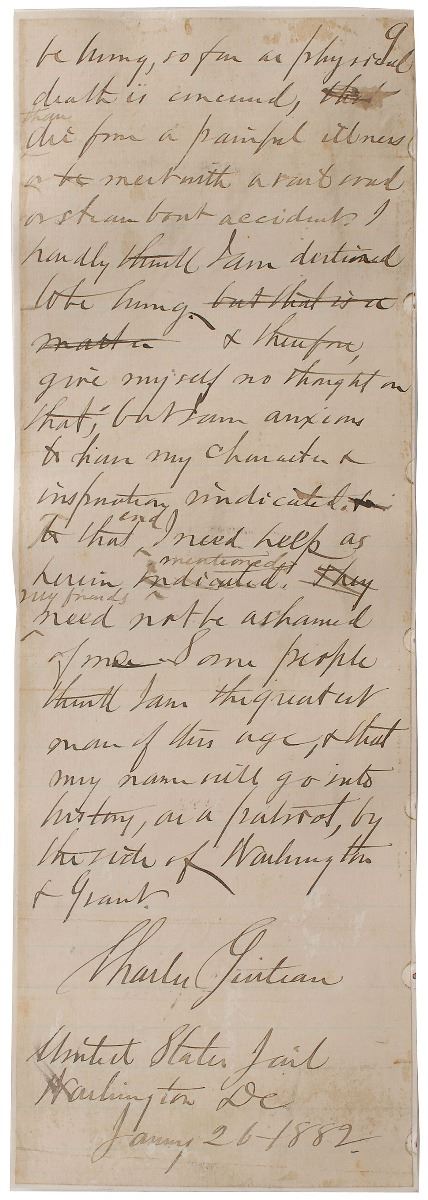 9
be hung, so far as physical
death is concerned, the
than
die from a painful illness
or be meet with a rail road
or steam boat accident. I
hardly think I am destined
to be hung. but that is a
matter & therefore,
give myself no thought on
that; but I am anxious
to have my character &
inspiration vindicated. to
end
To that I need help as
mentioned
herein indicated. They
my friends
need not be ashamed
of me. Some people
think I am the greatest
man of this age, & that
my name will go into
history, as a patriot, by
the side of Washington
& Grant.
Charles Guiteau
United States Jail
Washington DC
26-1882.